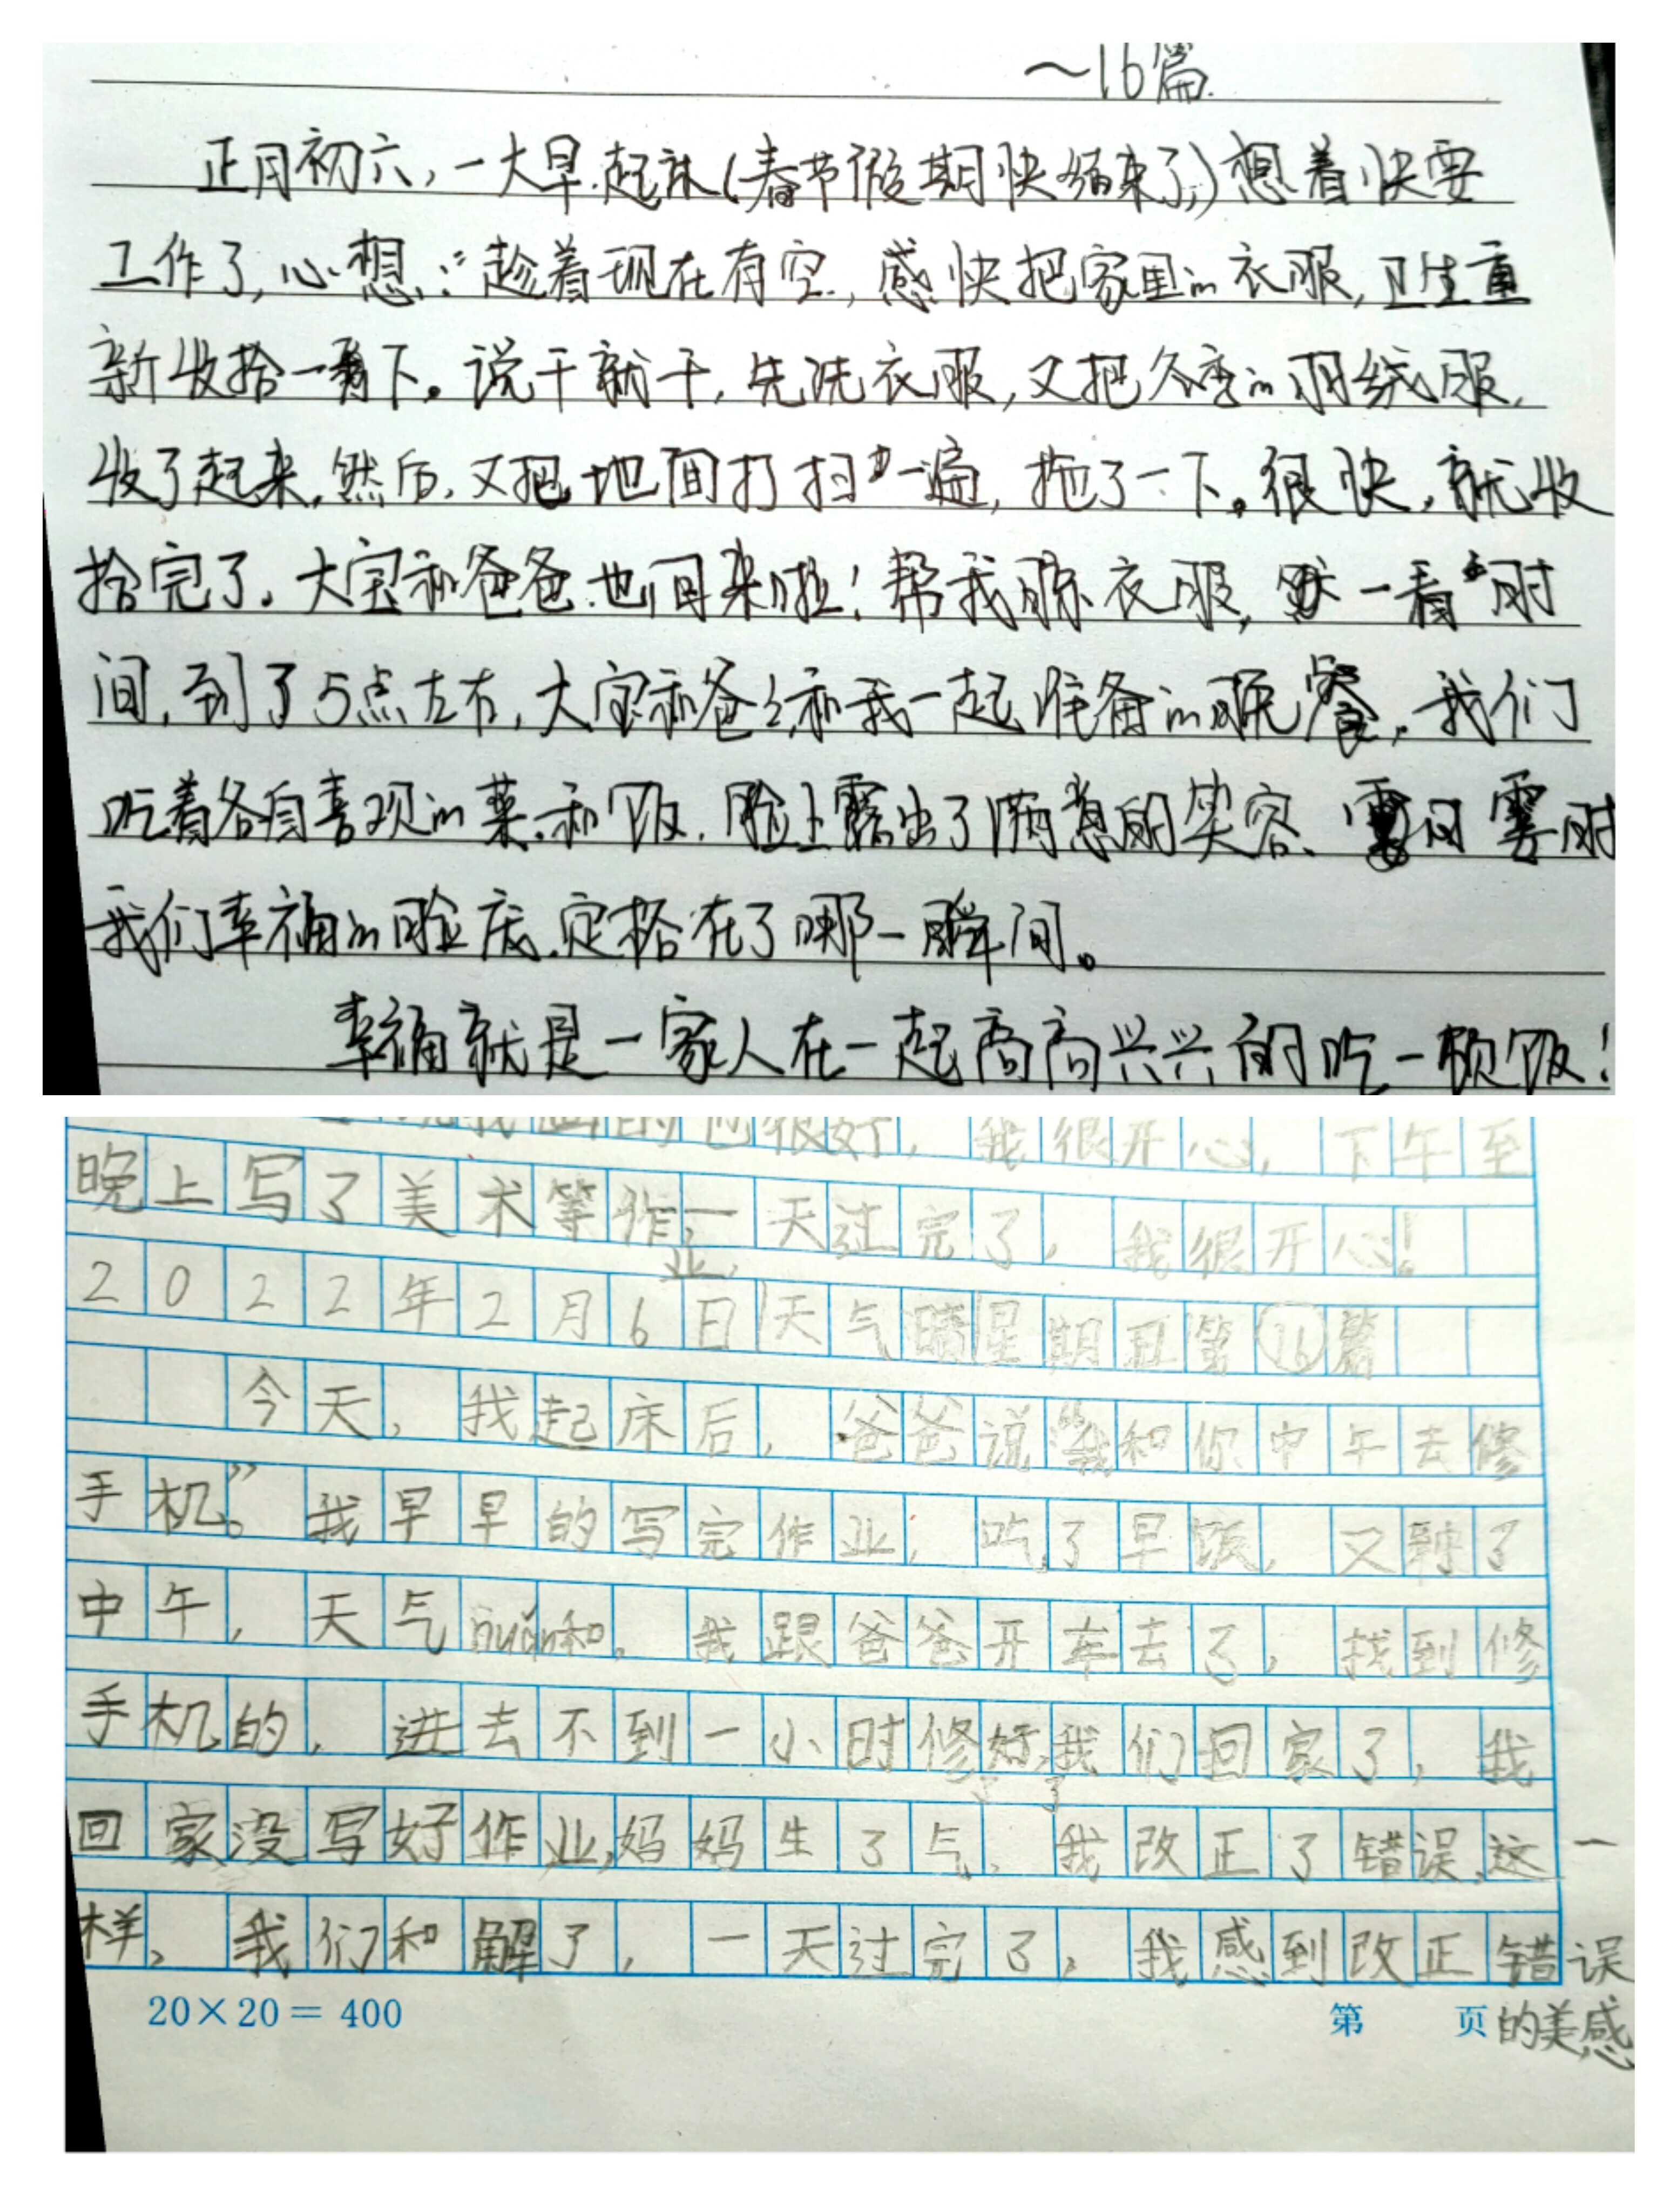 ~16篇.
正月初六,一大早.起床(春节假期快结束了,)想着快要
工作了,心想:“趁着现在有空,感快把家里的衣服,卫生重
新收拾一下。说干就干,先洗衣服,又把冬季的羽绒服,
收了起来,然后,又把地面打扫一遍,拖了一下。很快,就收
拾完了。大宝和爸爸也回来啦!帮我晾衣服,一看时
间,到了5点左右,大宝和爸爸和我一起准备的晚餐,我们
吃着各自喜欢的菜和饭,脸上露出了满意的笑容、霎时
我们幸福的脸庞,定格在了哪一瞬间。
幸福就是一家人在一起高高兴兴的吃一顿饭!
我画的也很好,我很开心,下午至
晚上写了美术等作业,一天过完了,我很开心!
2022年2月6日天气晴星期五第16篇
今天,我起床后,爸爸说:“我和你中午去修
手机。”我早早的写完作业,吃了早饭,又到了
中午,天气nuǎn和,我跟爸爸开车去了,找到修
手机的,进去不到一小时修好了,我们回家了,我
回家没写好作业,妈妈生了气,我改正了错误,这一
样,我们和解了,一天过完了,我感到改正错误
的美感
20×20=400 第 页